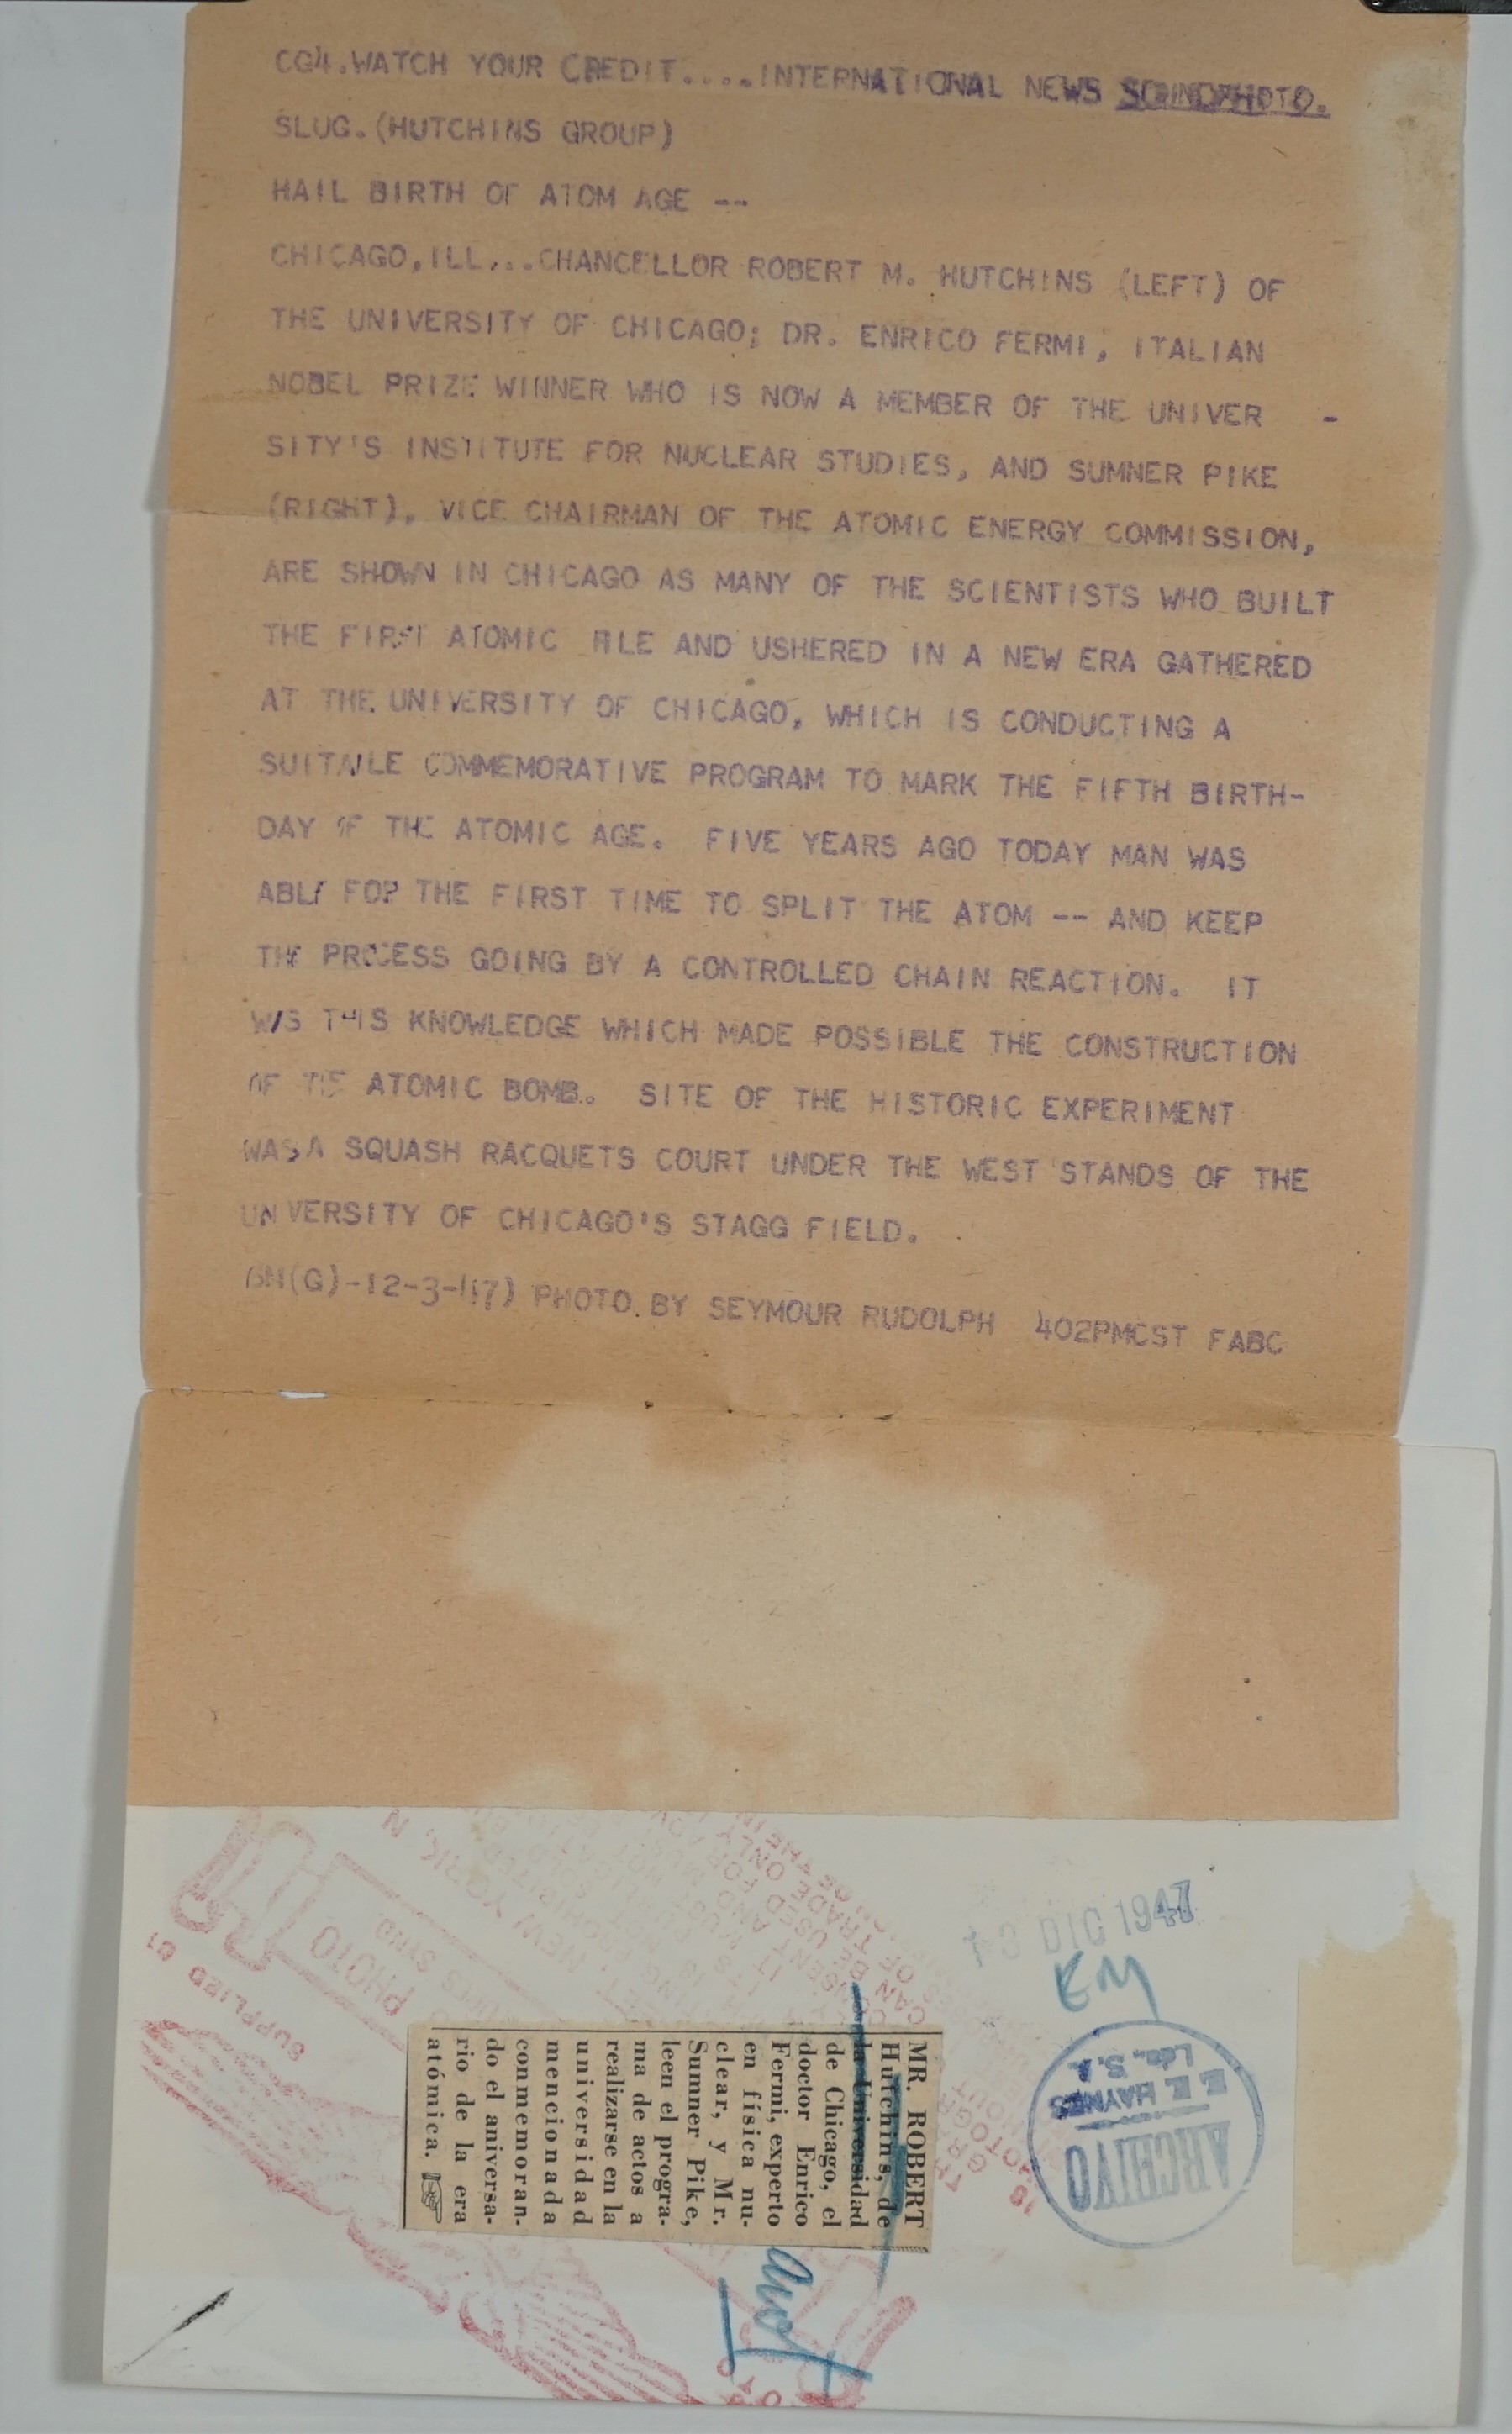 CG4.WATCH YOUR CREDIT....INTERNATIONAL NEWS SOUNDPHOTO.
SLUG.(HUTCHINS GROUP)
HAIL BIRTH OF ATOM AGE --
CHICAGO,ILL...CHANCELLOR ROBERT M. HUTCHINS (LEFT) OF
THE UNIVERSITY OF CHICAGO; DR. ENRICO FERMI, ITALIAN
NOBEL PRIZE WINNER WHO IS NOW A MEMBER OF THE UNIVER -
SITY'S INSTITUTE FOR NUCLEAR STUDIES, AND SUMNER PIKE
(RIGHT), VICE CHAIRMAN OF THE ATOMIC ENERGY COMMISSION,
ARE SHOWN IN CHICAGO AS MANY OF THE SCIENTISTS WHO BUILT
THE FIRST ATOMIC PILE AND USHERED IN A NEW ERA GATHERED
AT THE UNIVERSITY OF CHICAGO, WHICH IS CONDUCTING A
COMMEMORATIVE PROGRAM TO MARK THE FIFTH BIRTH-
DAY OF THE ATOMIC AGE. FIVE YEARS AGO TODAY MAN WAS
ABLE FOR THE FIRST TIME TO SPLIT THE ATOM -- AND KEEP
THE PROCESS GOING BY A CONTROLLED CHAIN REACTION. IT
WAS THIS KNOWLEDGE WHICH MADE POSSIBLE THE CONSTRUCTION
OF THE ATOMIC BOMB. SITE OF THE HISTORIC EXPERIMENT
WAS A SQUASH RACQUETS COURT UNDER THE WEST STANDS OF THE
UNIVERSITY OF CHICAGO'S STAGG FIELD.
12-3-47) PHOTO BY SEYMOUR RUDOLPH 402PMCST FABC
DIC 1947
EM
ARCHIVO
E. E. HAYNES
Ldo., S.A.
MR. ROBERT
Hutchins, de
la Universidad
de Chicago, el
doctor Enrico
Fermi, experto
en física nu-
clear, y Mr.
Sumner Pike,
leen el progra-
ma de actos a
realizarse en la
universidad
mencionada
conmemoran-
do el aniversa-
rio de la era
atómica.
SUPPLIED
PHOTO
SYND
NEW YORK, N
CAN BE USED FOR
OF TRADE ONLY